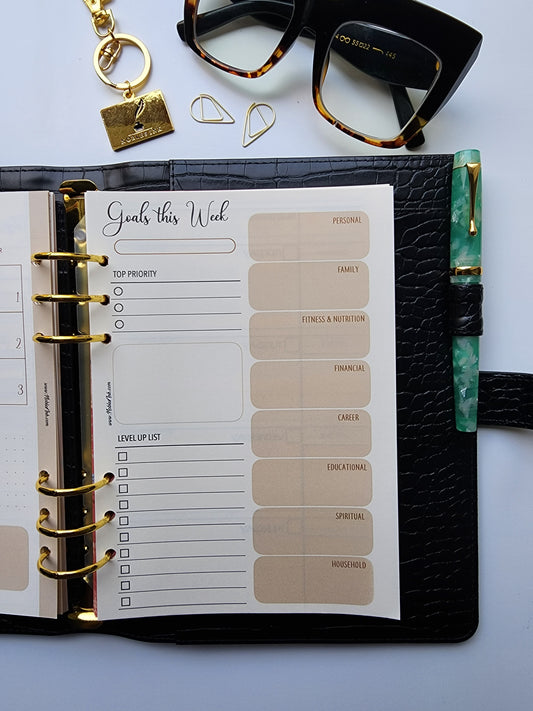 55□22 145
Goals this Week
TOP PRIORITY
LEVEL UP LIST
PERSONAL
FAMILY
FITNESS & NUTRITION
FINANCIAL
CAREER
EDUCATIONAL
SPIRITUAL
HOUSEHOLD
1
2
3